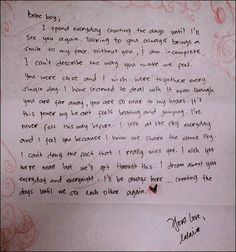 Dear boy,
I spend everyday counting the days until I'll
see you again. Talking to you always brings a
smile to my face. Without you, I am incomplete
I can't describe the way you make me feel.
You were close and I wish were together every
single day. I have learned to deal with it even though
you are far away, you are so near to my heart. It's
this to my heart feels beating and jumping. I've
never felt this way before. I look at the sky everyday
and I feel you because I know we share the same sky.
I can't deny the fact that I really miss you. I wish you
were near but we'll get through this. I dream about you
everyday and everynight. I'll be always here ... counting the
days until we see each other again.
love,